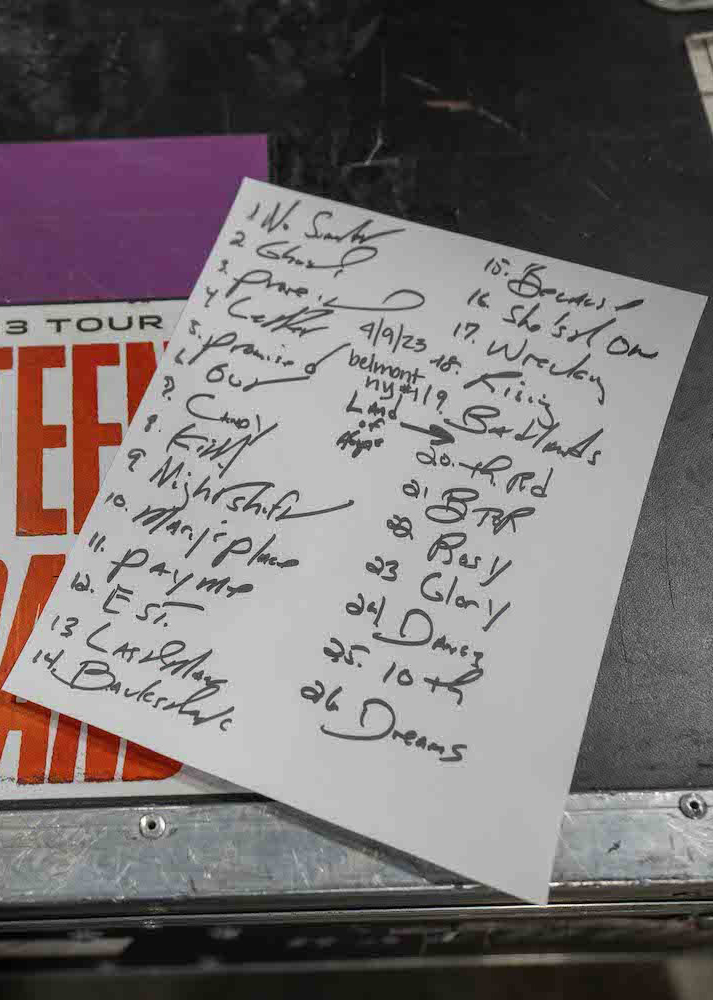 3 TOUR
TEEN
1 No Surr
2. Ghost
3. Prove it
4 Letter
5. Promise d
6. Out
7. Candy
8. Kitty
9 Nightshift
10. Mary's Place
11. Pay me
12. E ST.
13 Last Man
14. Backstreets
4/9/23
belmont
ny #1
Land
of
Hope
15. Because
16. She's the One
17. Wrecking
18. Rising
19. Badlands
20. th Rd
21. BTR
22 Rosy
23 Glory
24 Dance
25. 10th
26 Dreams